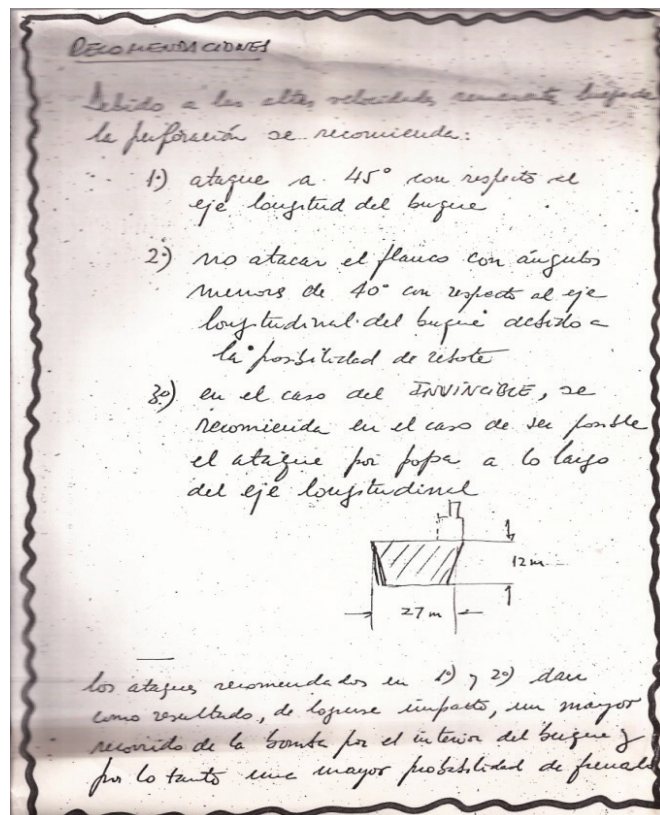 RECOMENDACIONES
Debido a las altas velocidades remanente luego de
la perforación se recomienda:
1º) ataque a 45° con respecto al
eje longitud del buque
2º) no atacar el flanco con ángulos
menores de 40° con respecto al eje
longitudinal del buque debido a
la posibilidad de rebote
3º) en el caso del INVINCIBLE, se
recomienda en el caso de ser posible
el ataque por popa a lo largo
del eje longitudinal
12 m
27 m
los ataques recomendados en 1º) y 2º) dan
como resultado, de lograrse impacto, un mayor
recorrido de la bomba por el interior del buque y
por lo tanto una mayor probabilidad de frenado